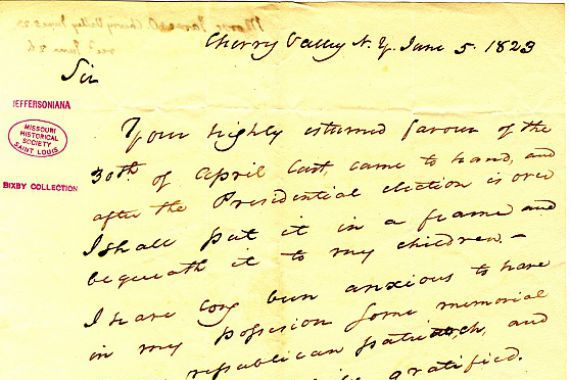 Cherry Valley N.Y. June 5. 1823
Sir
JEFFERSONIANA
MISSOURI
HISTORICAL
SOCIETY
SAINT LOUIS
BIXBY COLLECTION
Your highly esteemed favour of the
30th. of April last, came to hand, and
after the Presidential election is over
I shall put it in a frame and
bequeath it to my children.—
I have long been anxious to have
in my possession some memorial
republican patriarch, and
gratified.